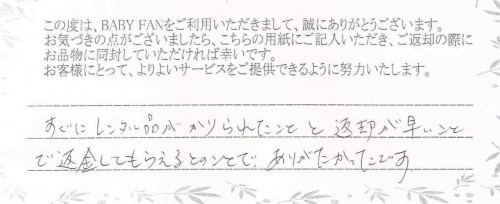 この度は、BABY FANをご利用いただきまして、誠にありがとうございます。
お気づきの点がございましたら、こちらの用紙にご記入いただき、ご返却の際に
お品物に同封していただければ幸いです。
お客様にとって、よりよいサービスをご提供できるように努力いたします。
すぐにレンタル品がかりられたことと返却が早いこと
で返金してもらえるとのことで、ありがたかったです